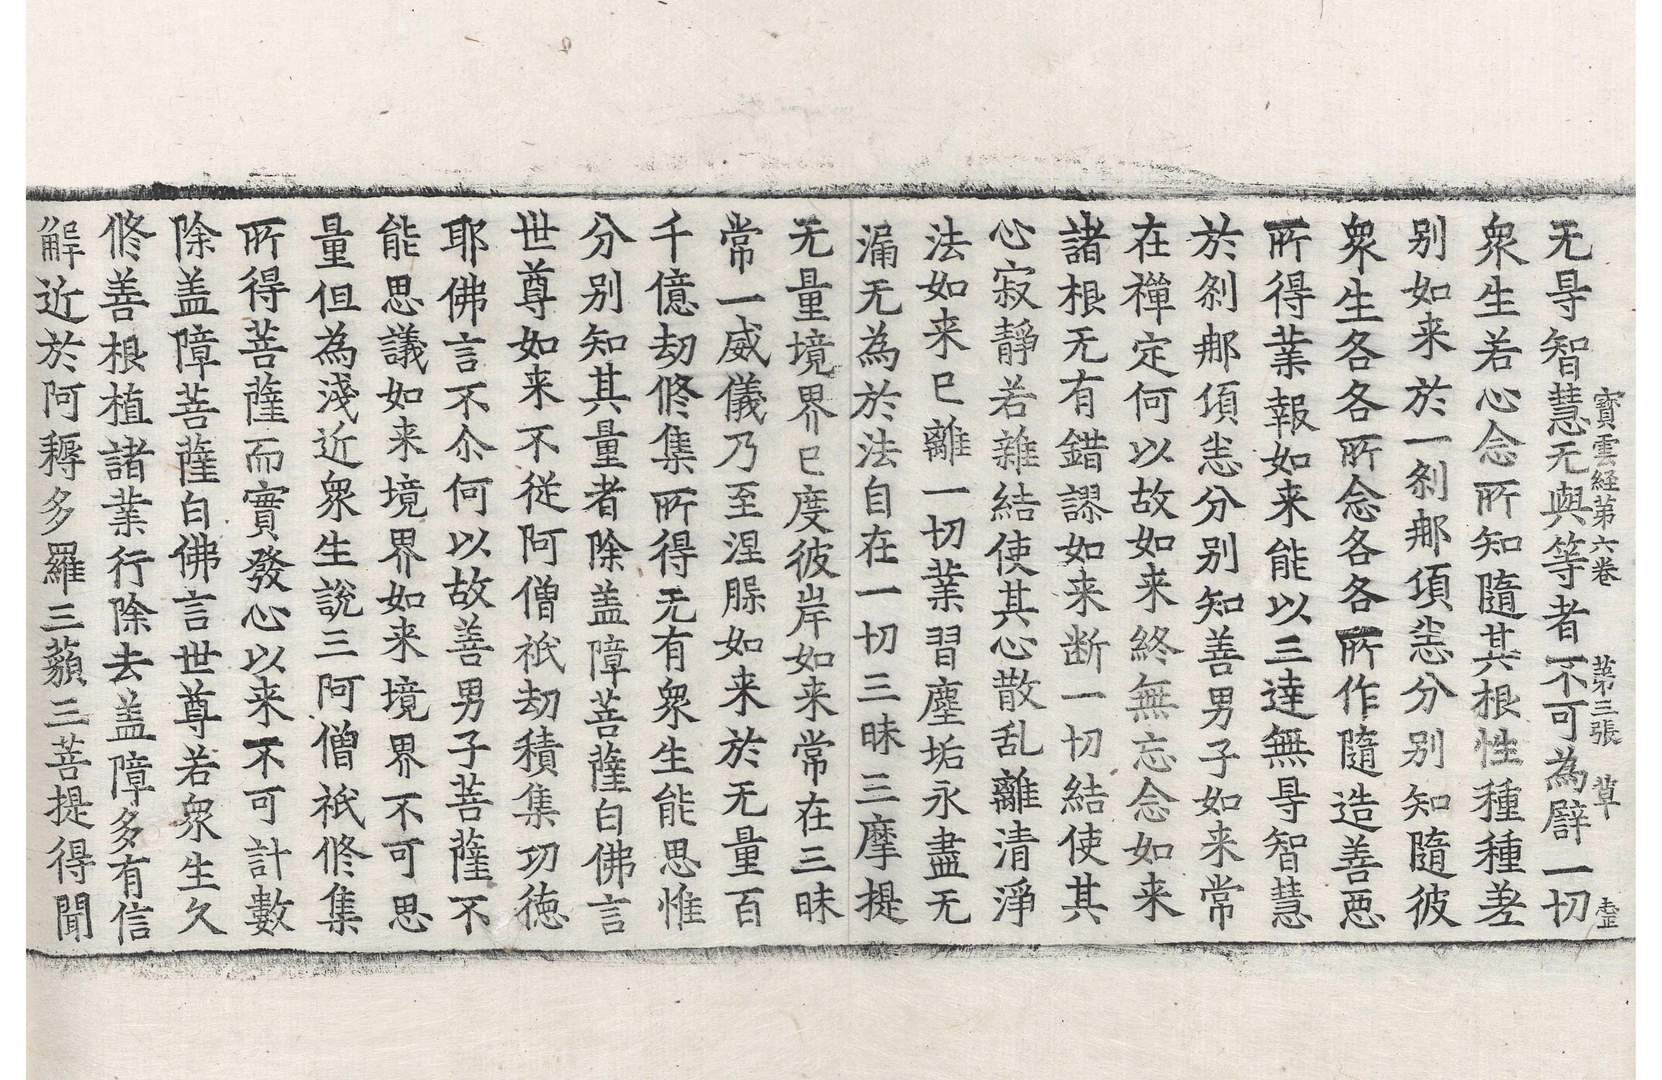 寶雲経苐六卷 苐三張 草 㱏
无㝵智慧无與等者不可為譬一切
衆生若心念所知隨其根性種種差
别如来於一刹那頃悉分别知隨彼
衆生各各所念各各所作隨造善惡
所得業報如来能以三達無㝵智慧
於刹那頃悉分别知善男子如来常
在禪定何以故如来終無忘念如来
諸根无有錯謬如来断一切結使其
心寂靜若雜結使其心散乱離清淨
法如来已離一切業習塵垢永盡无
漏无為於法自在一切三昧三摩提
无量境界已度彼岸如来常在三昧
常一威儀乃至涅槃如来於无量百
千億劫修集所得无有衆生能思惟
分别知其量者除盖障菩薩白佛言
世尊如来不従阿僧祇劫積集功徳
耶佛言不尒何以故善男子菩薩不
能思議如来境界如来境界不可思
量但為淺近衆生說三阿僧祇修集
所得菩薩而實發心以来不可計數
除盖障菩薩白佛言世尊若衆生久
修善根植諸業行除去盖障多有信
解近於阿耨多羅三藐三菩提得聞